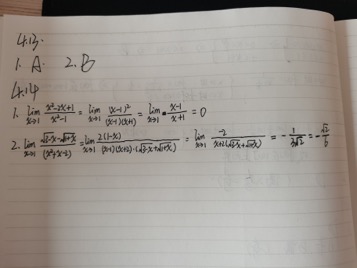 4.13.
1. A. 2. B
4.14
1. lim x→1 (x²-2x+1)/(x²-1) = lim x→1 (x-1)²/((x-1)(x+1)) = lim x→1 (x-1)/(x+1) = 0
2. lim x→1 (√(3-x)-√(1+x))/(x²+x-2) = lim x→1 2(1-x)/((x-1)(x+2)·(√(3-x)+√(1+x))) = lim x→1 -2/(x+2(√(3-x)+√(1+x))) = -1/(3√2) = -√2/6